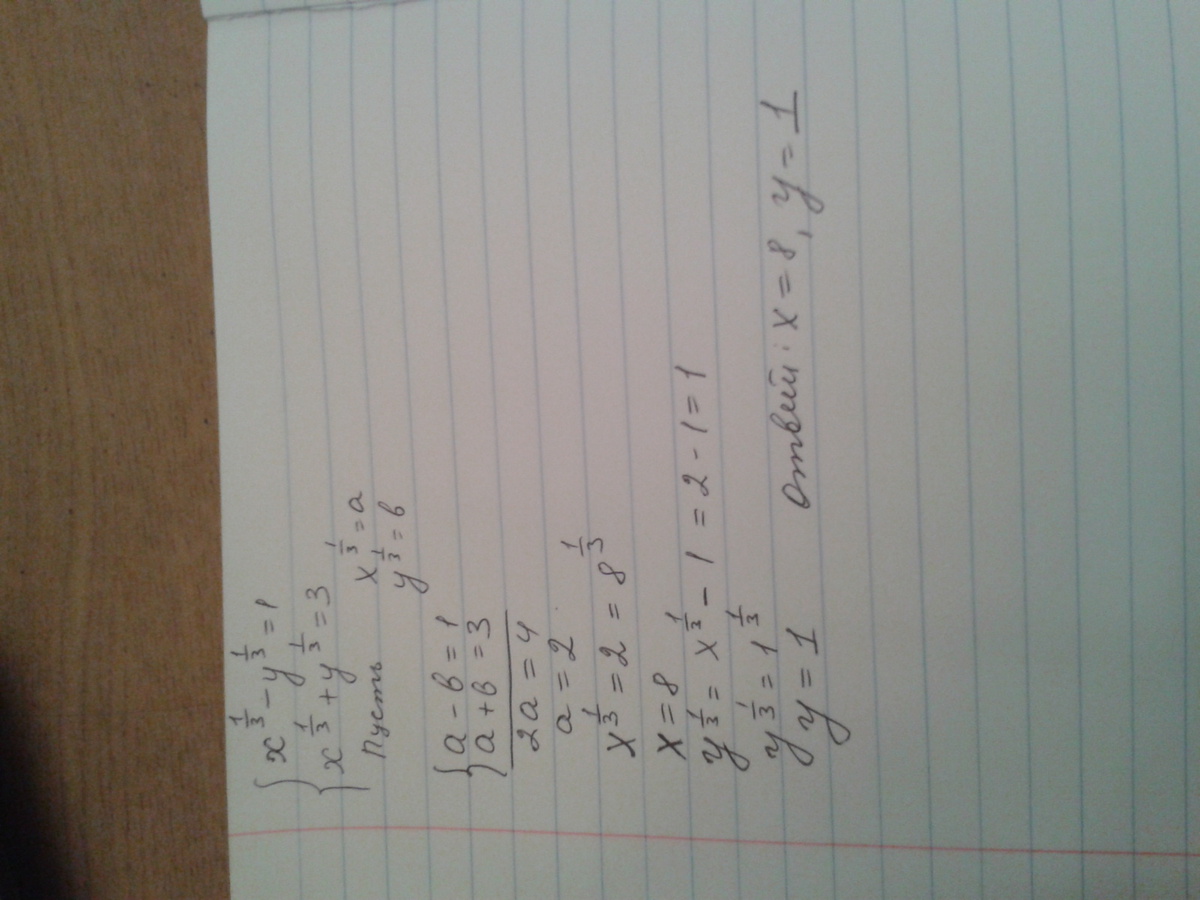 { x^{1/3} - y^{1/3} = 1
{ x^{1/3} + y^{1/3} = 3
Пусть x^{1/3} = a
y^{1/3} = в
{ a - в = 1
{ a + в = 3
2a = 4
a = 2
x^{1/3} = 2 = 8^{1/3}
x = 8
y^{1/3} = x^{1/3} - 1 = 2 - 1 = 1
y^{1/3} = 1^{1/3}
y = 1
Ответ: x = 8, y = 1